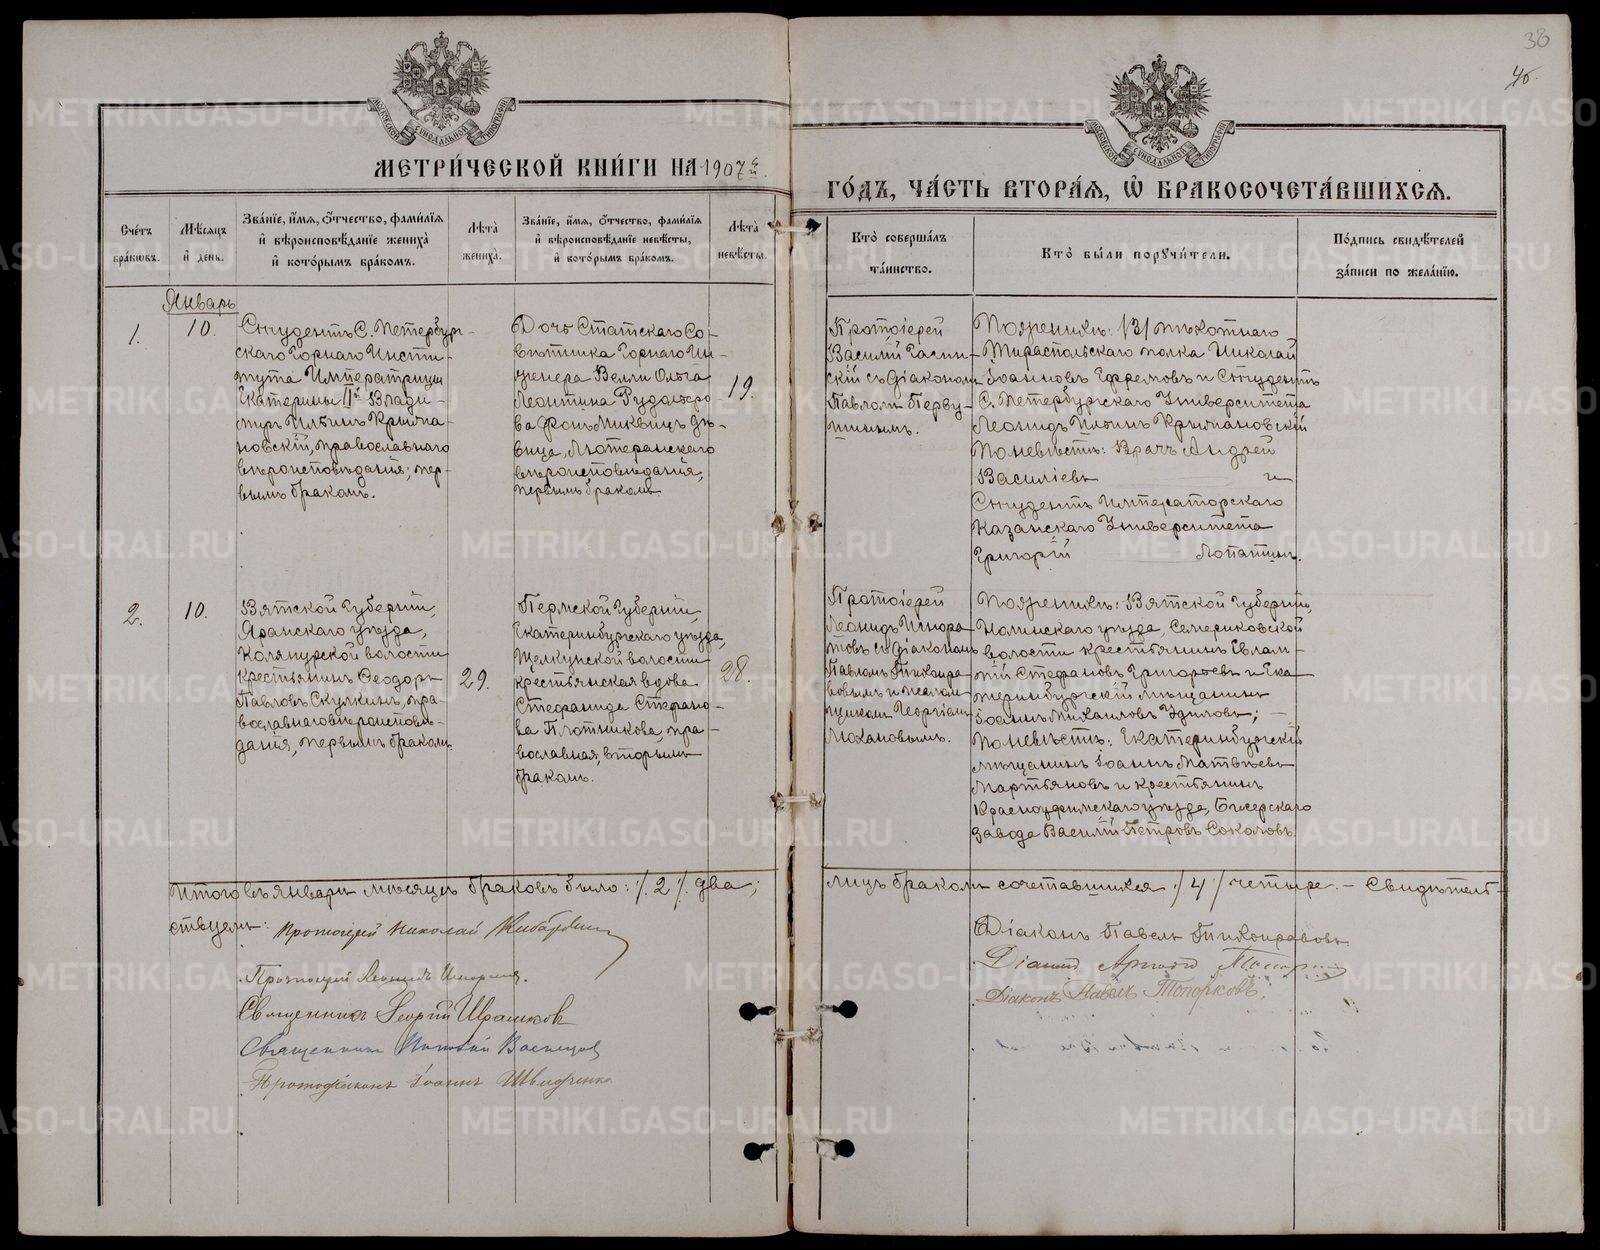 38
46.
МОСКОВСКОЙ СѴНОДАЛЬНОЙ ТИПОГРАФІИ
МЕТРИ́ЧЕСКОЙ КНИ́ГИ НА 1907 й.
МОСКОВСКОЙ СѴНОДАЛЬНОЙ ТИПОГРАФІИ
ГО́ДЪ, ЧА́СТЬ ВТОРА́Я, Ѽ БРАКОСОЧЕТА́ВШИХСЯ.
Сче́тъ бра́кѡвъ.
Мѣ́сяцъ и҆ де́нь.
Зва́нїе, и҆́мя, ѻ҆́тчество, фами́лїя
и҆ вѣроисповѣ́данїе жениха̀
и҆ кото́рымъ бра́комъ.
Лѣта̀ жениха̀.
Зва́нїе, и҆́мя, ѻ҆́тчество, фами́лїя
и҆ вѣроисповѣ́данїе невѣ́сты,
и҆ кото́рымъ бра́комъ.
Лѣта̀ невѣ́сты.
Кто̀ соверша́лъ
та́инство.
Кто̀ бы́ли порꙋчи́тели.
По́дпись свидѣ́телей
за́писи по жела́нїю.
Январь
1.
10.
Студентъ С. Петербург-
скаго Горнаго Инсти-
тута Императрицы
Екатерины IIй Влади-
миръ Ильинъ Крыжа-
новскій, православнаго
вѣроисповѣданія; пер-
вымъ бракомъ.
Дочь Статскаго Со-
вѣтника Горнаго Ин-
женера Велли Ольга
Леонтина Рудольфо-
ва фонъ Миквицъ дѣ-
вица, Лютеранскаго
вѣроисповѣданія,
первымъ бракомъ.
19.
Протоіерей
Василій
скій съ діакономъ
Павломъ Перву-
шинымъ.
По женихѣ: /3/ пѣхотнаго
Тираспольскаго полка Николай
Іоанновъ Ефремовъ и Студентъ
С. Петербургскаго Университета
Леонидъ Ильинъ Крыжановскій
По невѣстѣ: Врачъ Андрей
Василіевъ и
Студентъ Императорскаго
Казанскаго Университета
Григорій Лопатинъ.
2.
10.
Вятской Губерніи,
Яранскаго уѣзда,
Колянурской волости
крестьянинъ Ѳеодоръ
Павловъ Скулкинъ, пра-
вославнаго вѣроисповѣ-
данія, первымъ бракомъ.
29.
Пермской Губерніи,
Екатеринбургскаго уѣзда,
Щелкунской волости
крестьянская вдова
Стефанида Стефано-
ва Плотникова, пра-
вославная, вторымъ
бракомъ.
28.
Протоіерей
Леонидъ Игнора-
товъ съ діакономъ
Павломъ Тихонра-
вовымъ и псалом-
щикомъ Георгіемъ
Мохановымъ.
По женихѣ: Вятской Губерніи,
Нолинскаго уѣзда, Семериковской
волости крестьянинъ Евлам-
пій Стефановъ Григорьевъ и Ека-
теринбургскій мѣщанинъ
Іоаннъ Михаиловъ Удиловъ;
По невѣстѣ: Екатеринбургскій
мѣщанинъ Іоаннъ Матвѣевъ
Мартьяновъ и крестьянинъ
Красноуфимскаго уѣзда, Бисерскаго
завода Василій Петровъ Соколовъ.
Итого въ январѣ мѣсяцѣ браковъ было: /.2/. два;
лицъ бракомъ сочетавшихся /4/ четыре. – Свидѣтель-
ствуемъ: Протоіерей Николай
Протоіерей Леонидъ
Священникъ Георгій
Священникъ
Протодіаконъ Іоаннъ
Діаконъ Павелъ Тихонравовъ
Діаконъ
Діаконъ Павелъ Топорковъ.
METRIKI.GASO-URAL.RU